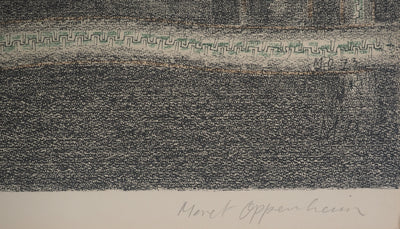 M.O. 73
Meret Oppenheim